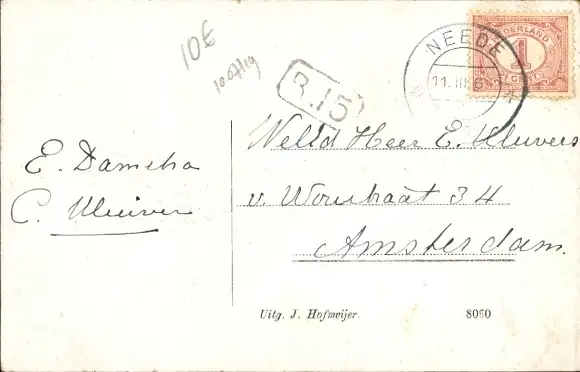 10€
100719
B.15
NEEDE
11. III
NEDERLAND
1
CENT
E. Dameha
C. Kluiver
Welld Heer E. Kluvers
v. Woustraat 34
Amsterdam.
Uitg. J. Hofmeijer.
8060